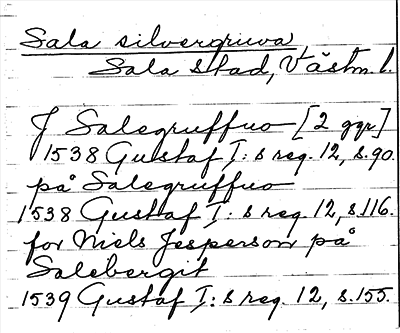 Sala silvergruva,
Sala stad, Västm. l.
J Salegruffuo [2 ggr]
1538 Gustaf I:s reg. 12, s. 90.
på Salegruffuo
1538 Gustaf I:s reg. 12, s. 116.
for Niels Jesperson på
Salebergit
1539 Gustaf I:s reg. 12, s. 155.